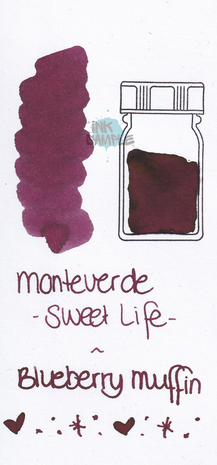 INK
SAMPLE
Monteverde
- Sweet Life -
~
Blueberry Muffin